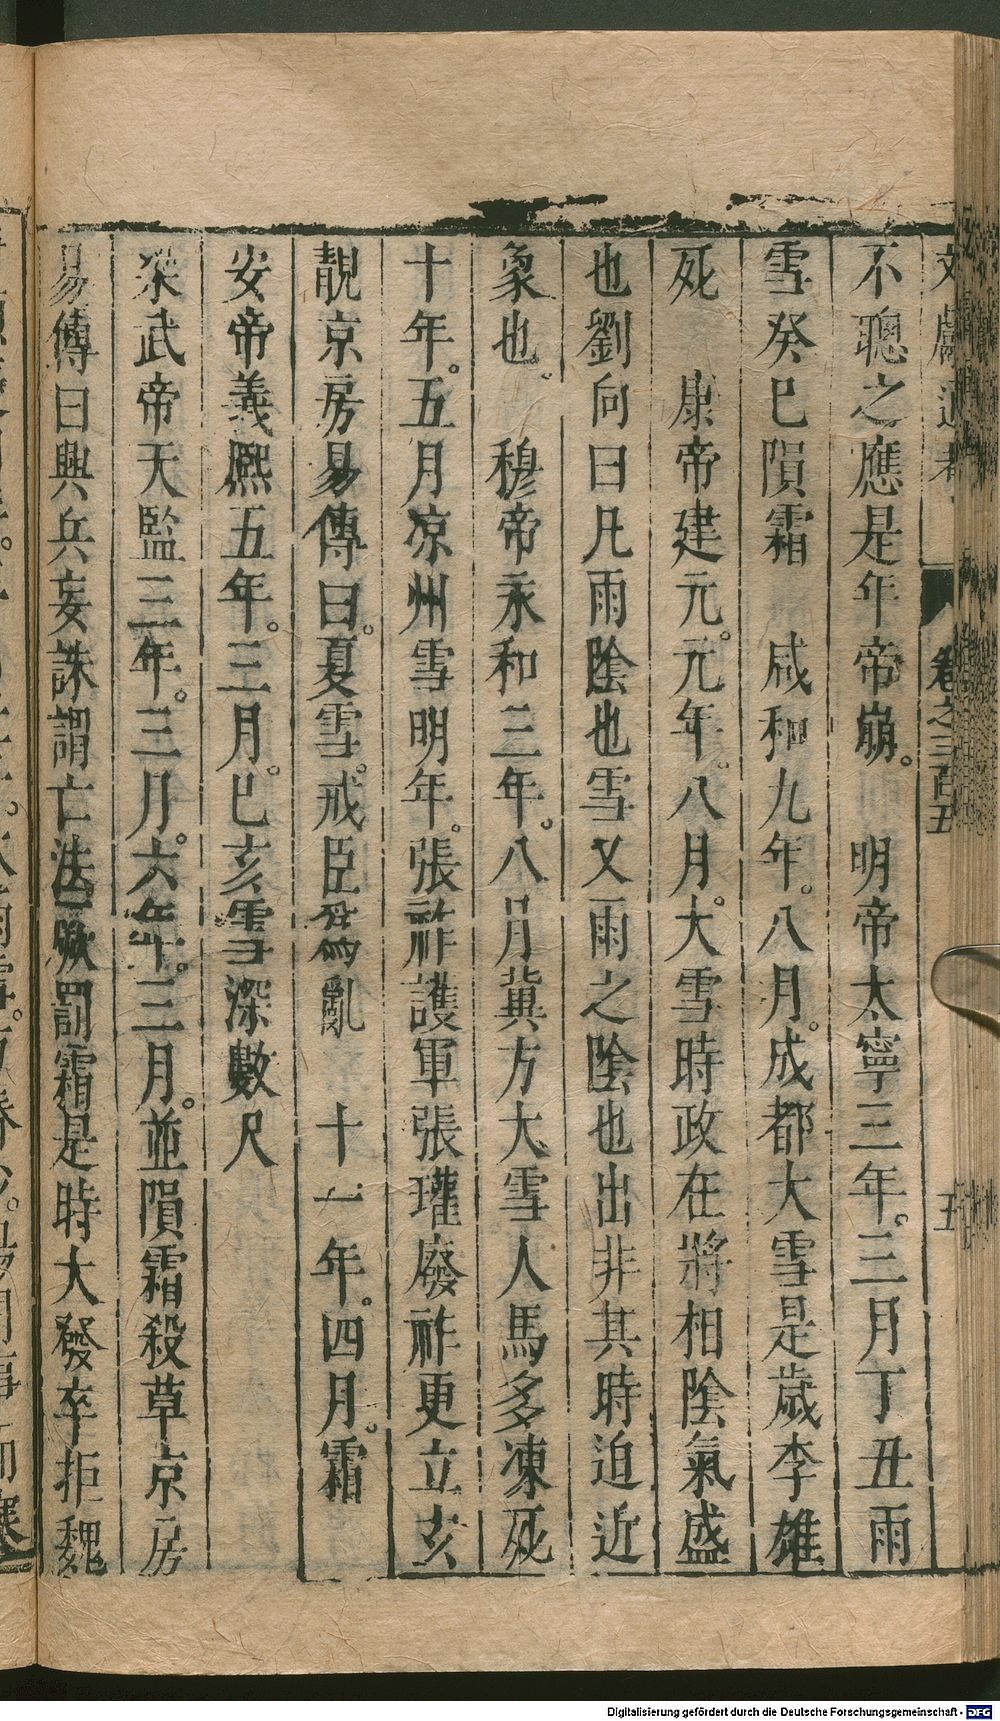 文獻通考 卷之三百五 五
不聰之應是年帝崩。 明帝太寧三年。三月丁丑雨
雪癸巳隕霜 咸和九年。八月。成都大雪是歲李雄
死 康帝建元。元年。八月。大雪時政在將相陰氣盛
也劉向曰凡雨陰也雪又雨之陰也出非其時迫近
象也。 穆帝永和三年。八月冀方大雪人馬多凍死
十年。五月凉州雪明年。張祚護軍張瓘廢祚更立玄
靚京房易傳曰。夏雪。戒臣爲亂 十一年。四月。霜
安帝義熙五年。三月。巳亥雪深數尺
梁武帝天監三年。三月。六年。三月。並隕霜殺草京房
易傳曰興兵妄誅謂亡法厥罰霜是時大發卒拒魏
Digitalisierung gefördert durch die Deutsche Forschungsgemeinschaft - DFG